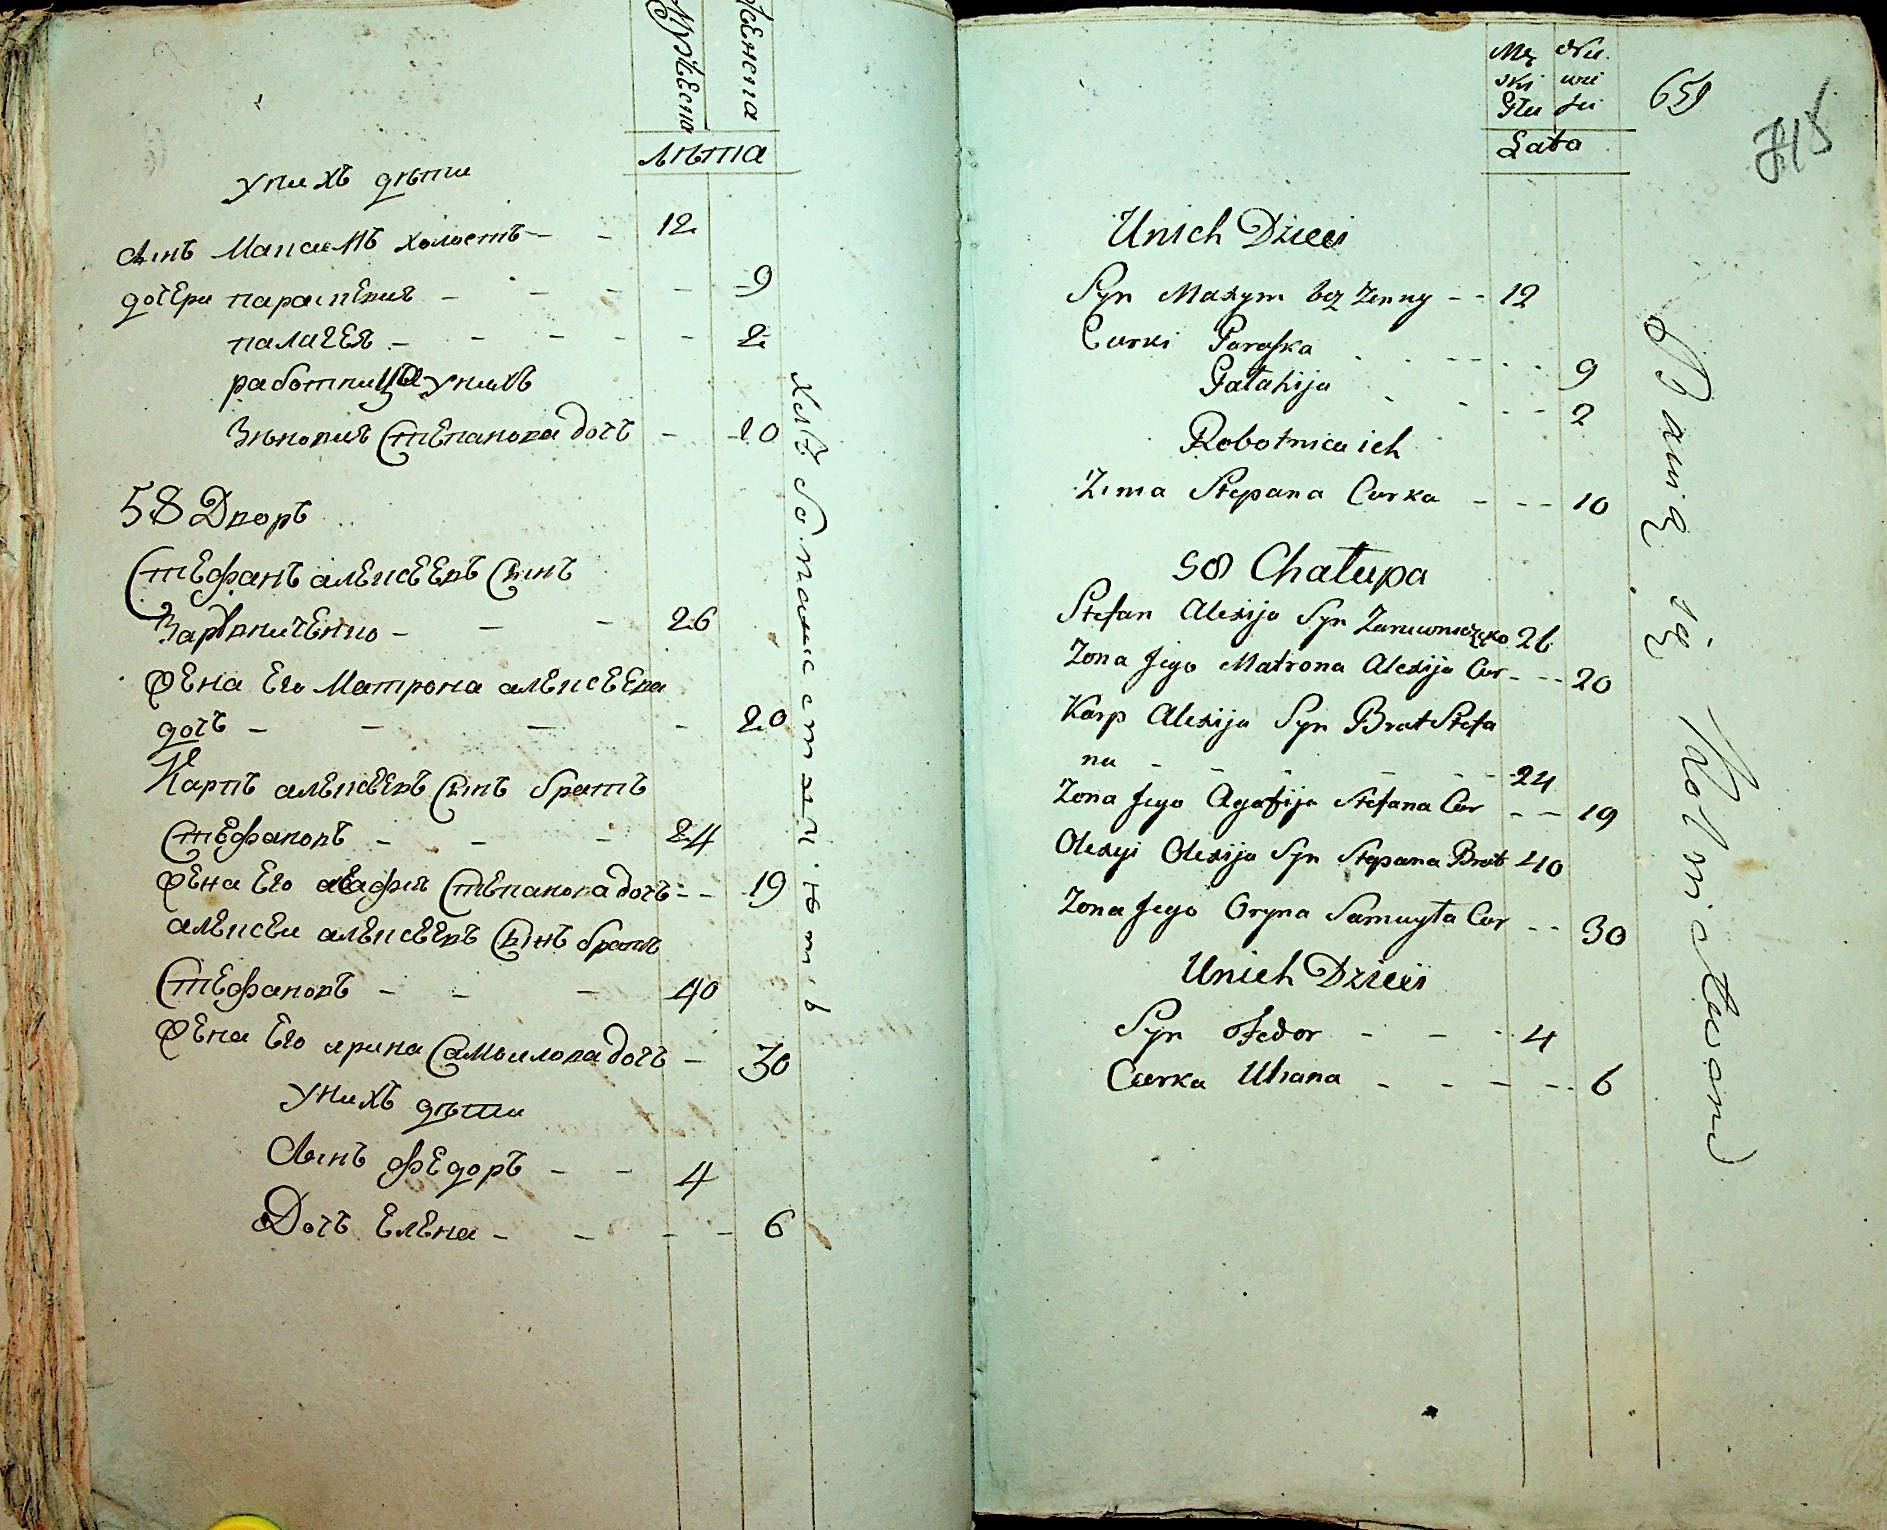 Мужеска
Женска
лѣта
унихъ дѣти
Сынъ Маѯимъ холостъ - - 12
дочери параскевия - - - - 9
палагея - - - - - 2
работница унихъ
Зѣновия Степанова дочь - 10
58 Дворъ
Стефанъ алексеевъ Сынъ
Зарѣвниченко - - - 26
Жена Его Матрона алексеева
дочь - - - - 20
Карпъ алексеевъ Сынъ братъ
Стефановъ - - - 24
Жена Его агафия Степанова дочь - - 19
алексеи алексеевъ Сынъ братъ
Стефановъ - - - 40
Жена Его ярина Самоилова дочь - 30
унихъ дѣти
Сынъ Федоръ - - 4
Дочь Елена - - - - 6
хлѣбопашествуютъ
Mę Nie
ski wie
Płu ści
Lata
659
Unich Dzieci
Syn Maxym bez Zenny - - 12
Curki Paraska - - - 9
Pałahija - - - 2
Robotnica ich
Zima Stepana Curka - - - 10
58 Chałupa
Stefan Alexija Syn Zarewniczęko 26
Zona Jego Matrona Alexija Cur - - - 20
Karp Alexija Syn Brat Stefa
na - - - - - - 24
Zona Jego Agafija Stefana Cur - - 19
Olexyi Olexija Syn Stepana Brat 40
Zona Jego Oryna Samuyła Cur - - 30
Unich Dzieci
Syn Fedor - - - 4
Curka Uliana - - - - - 6
Bawią się Rolnictwem